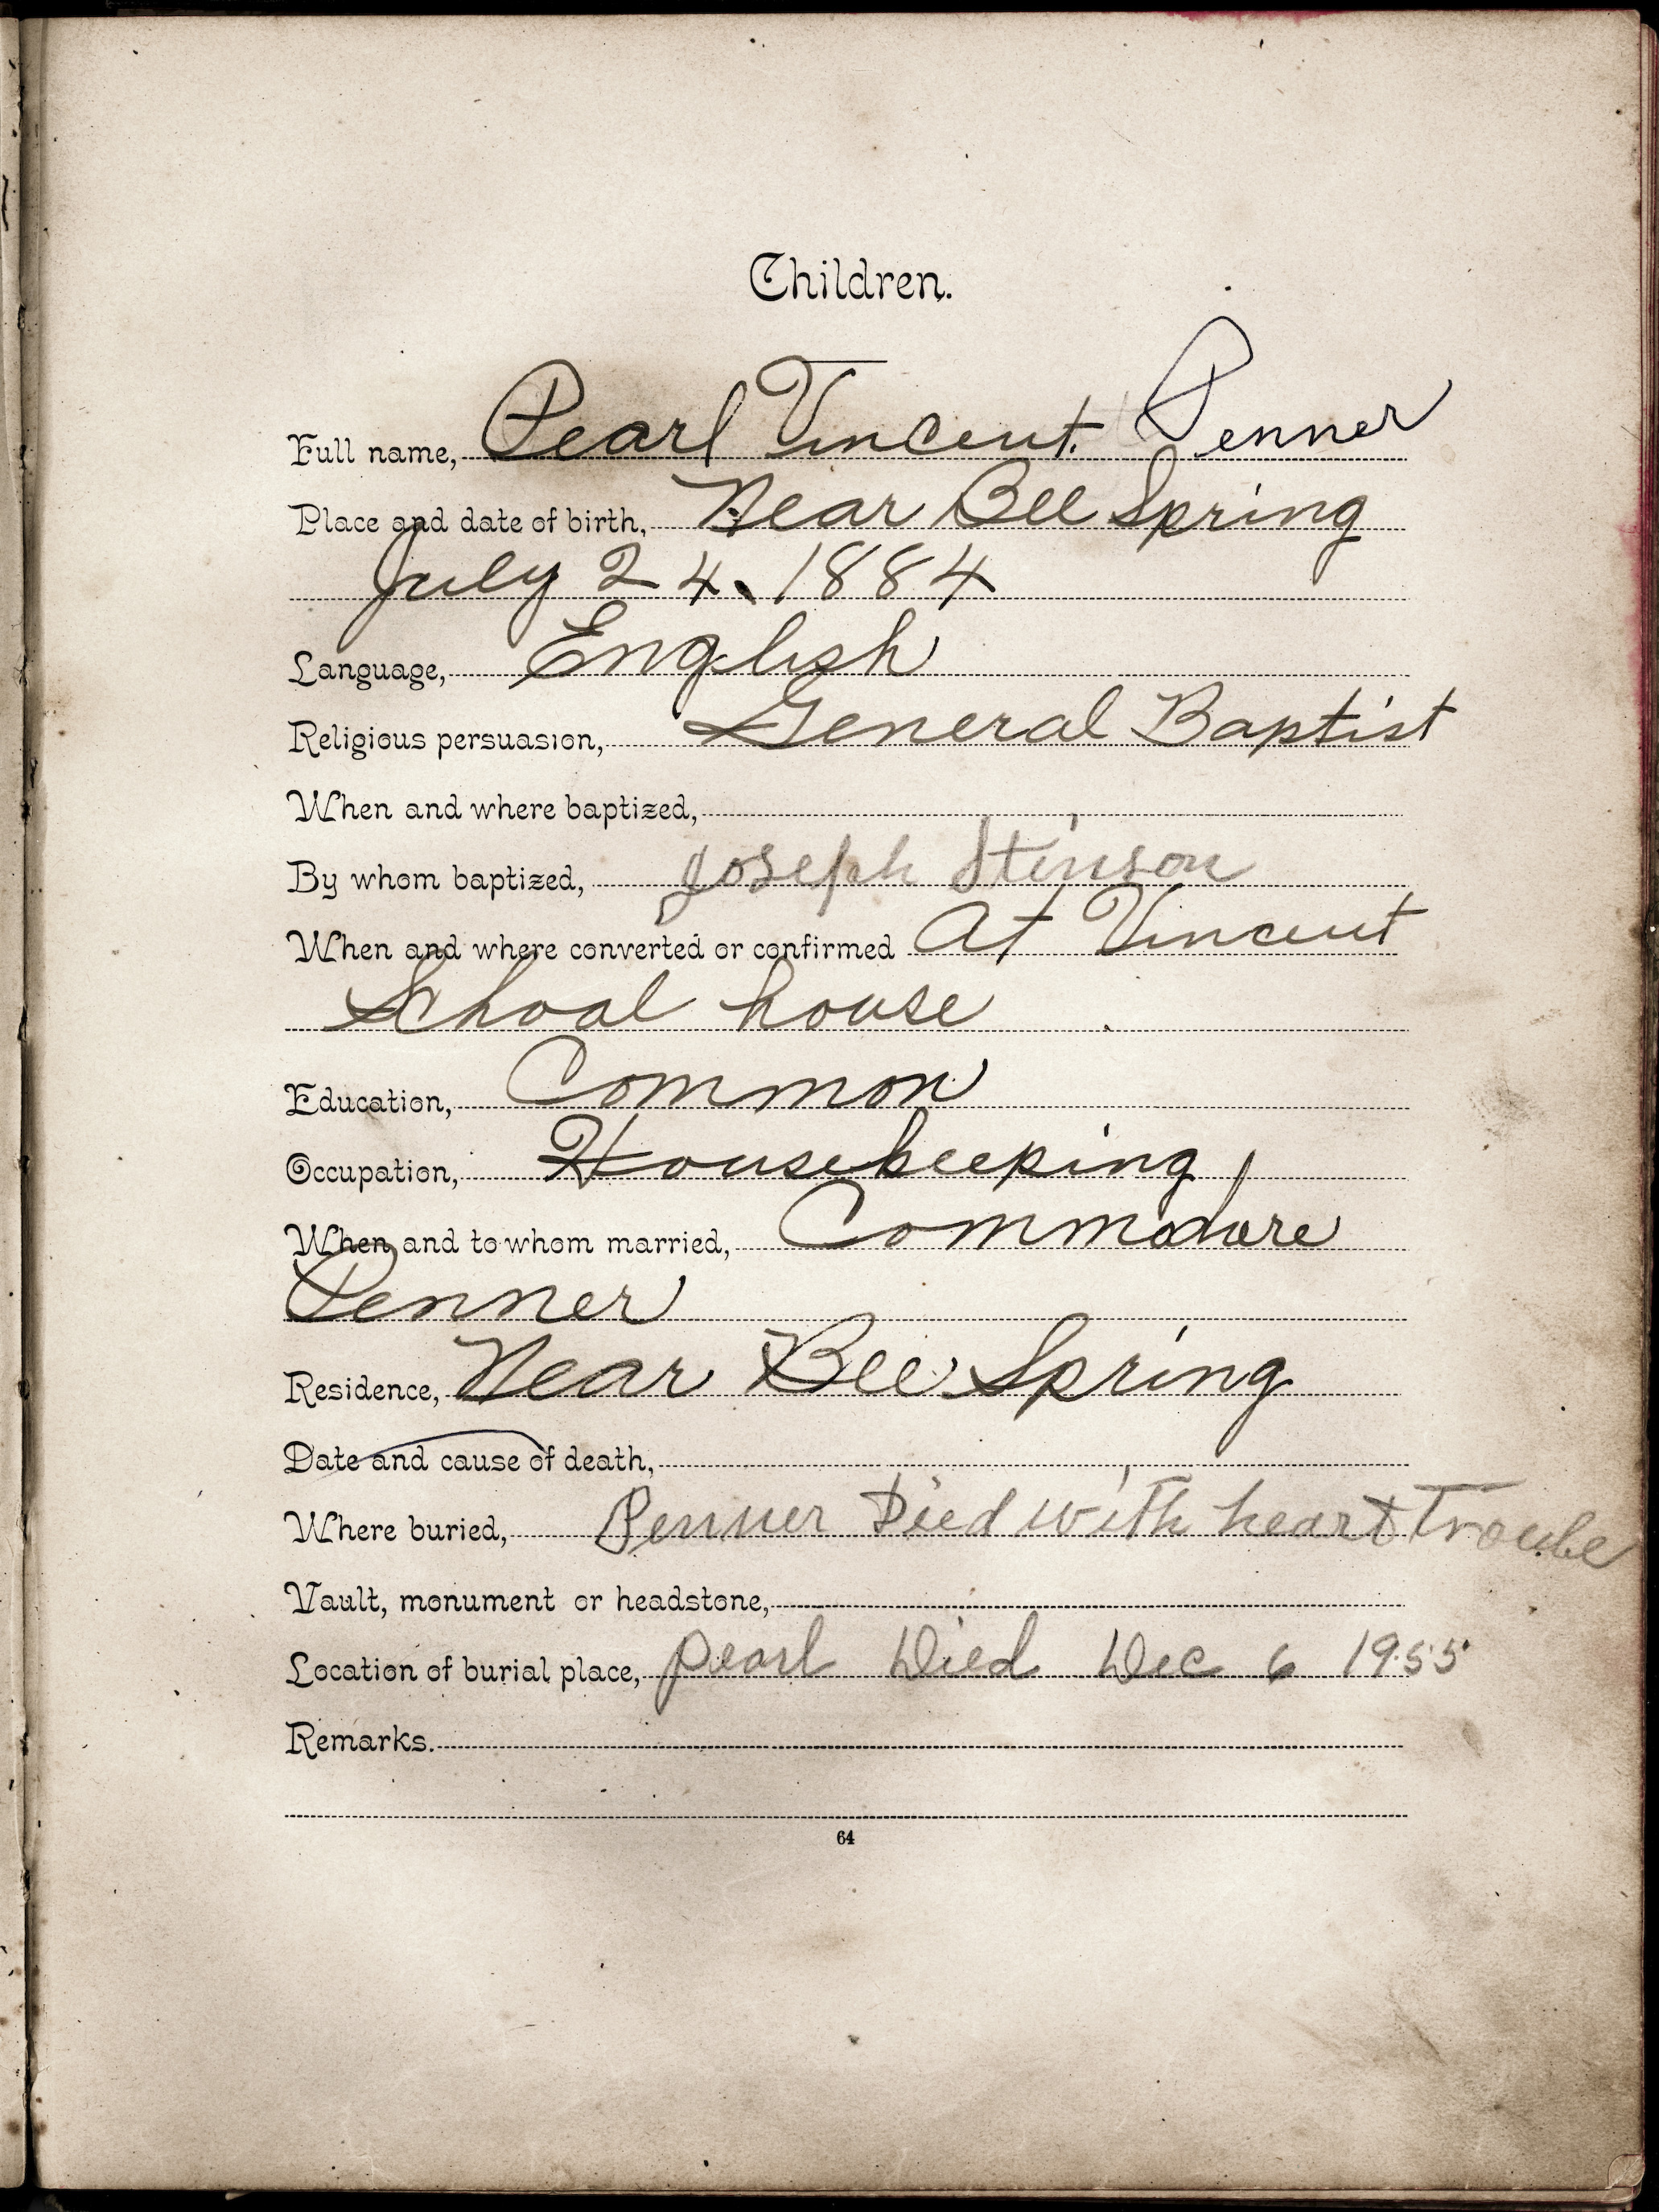 Children.
Full name, Pearl Vincent. Penner
Place and date of birth, Near Bee Spring
July 24. 1884
Language, English
Religious persuasion, General Baptist
When and where baptized,
By whom baptized, Joseph Stinson
When and where converted or confirmed At Vincent
School house
Education, Common
Occupation, Housekeeping
When and to whom married, Commodore
Penner
Residence, Near Bee Spring
Date and cause of death,
Where buried, Penner Died with heart Trouble
Vault, monument or headstone,
Location of burial place, Pearl Died Dec 6 1955
Remarks.
64